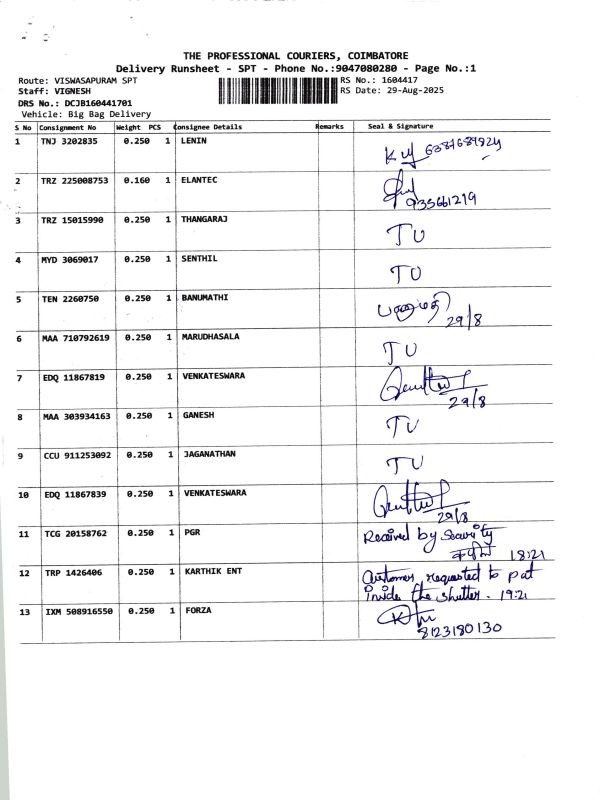 THE PROFESSIONAL COURIERS, COIMBATORE
Delivery Runsheet - SPT - Phone No.:9047080280 - Page No.:1
Route: VISWASAPURAM SPT RS No.: 1604417
Staff: VIGNESH RS Date: 29-Aug-2025
DRS No.: DCJB160441701
Vehicle: Big Bag Delivery
S No Consignment No Weight PCS Consignee Details Remarks Seal & Signature
1 TNJ 3202835 0.250 1 LENIN
2 TRZ 225008753 0.160 1 ELANTEC
3 TRZ 15015990 0.250 1 THANGARAJ TU
4 MYD 3069017 0.250 1 SENTHIL TU
5 TEN 2260750 0.250 1 BANUMATHI 29/8
6 MAA 710792619 0.250 1 MARUDHASALA TU
7 EDQ 11867819 0.250 1 VENKATESWARA 29/8
8 MAA 303934163 0.250 1 GANESH TU
9 CCU 911253092 0.250 1 JAGANATHAN TU
10 EDQ 11867839 0.250 1 VENKATESWARA 29/8
11 TCG 20158762 0.250 1 PGR Received by Security
18:21
12 TRP 1426406 0.250 1 KARTHIK ENT Customer requested to put
inside the shutter. 19:21
13 IXM 508916550 0.250 1 FORZA
8123180130